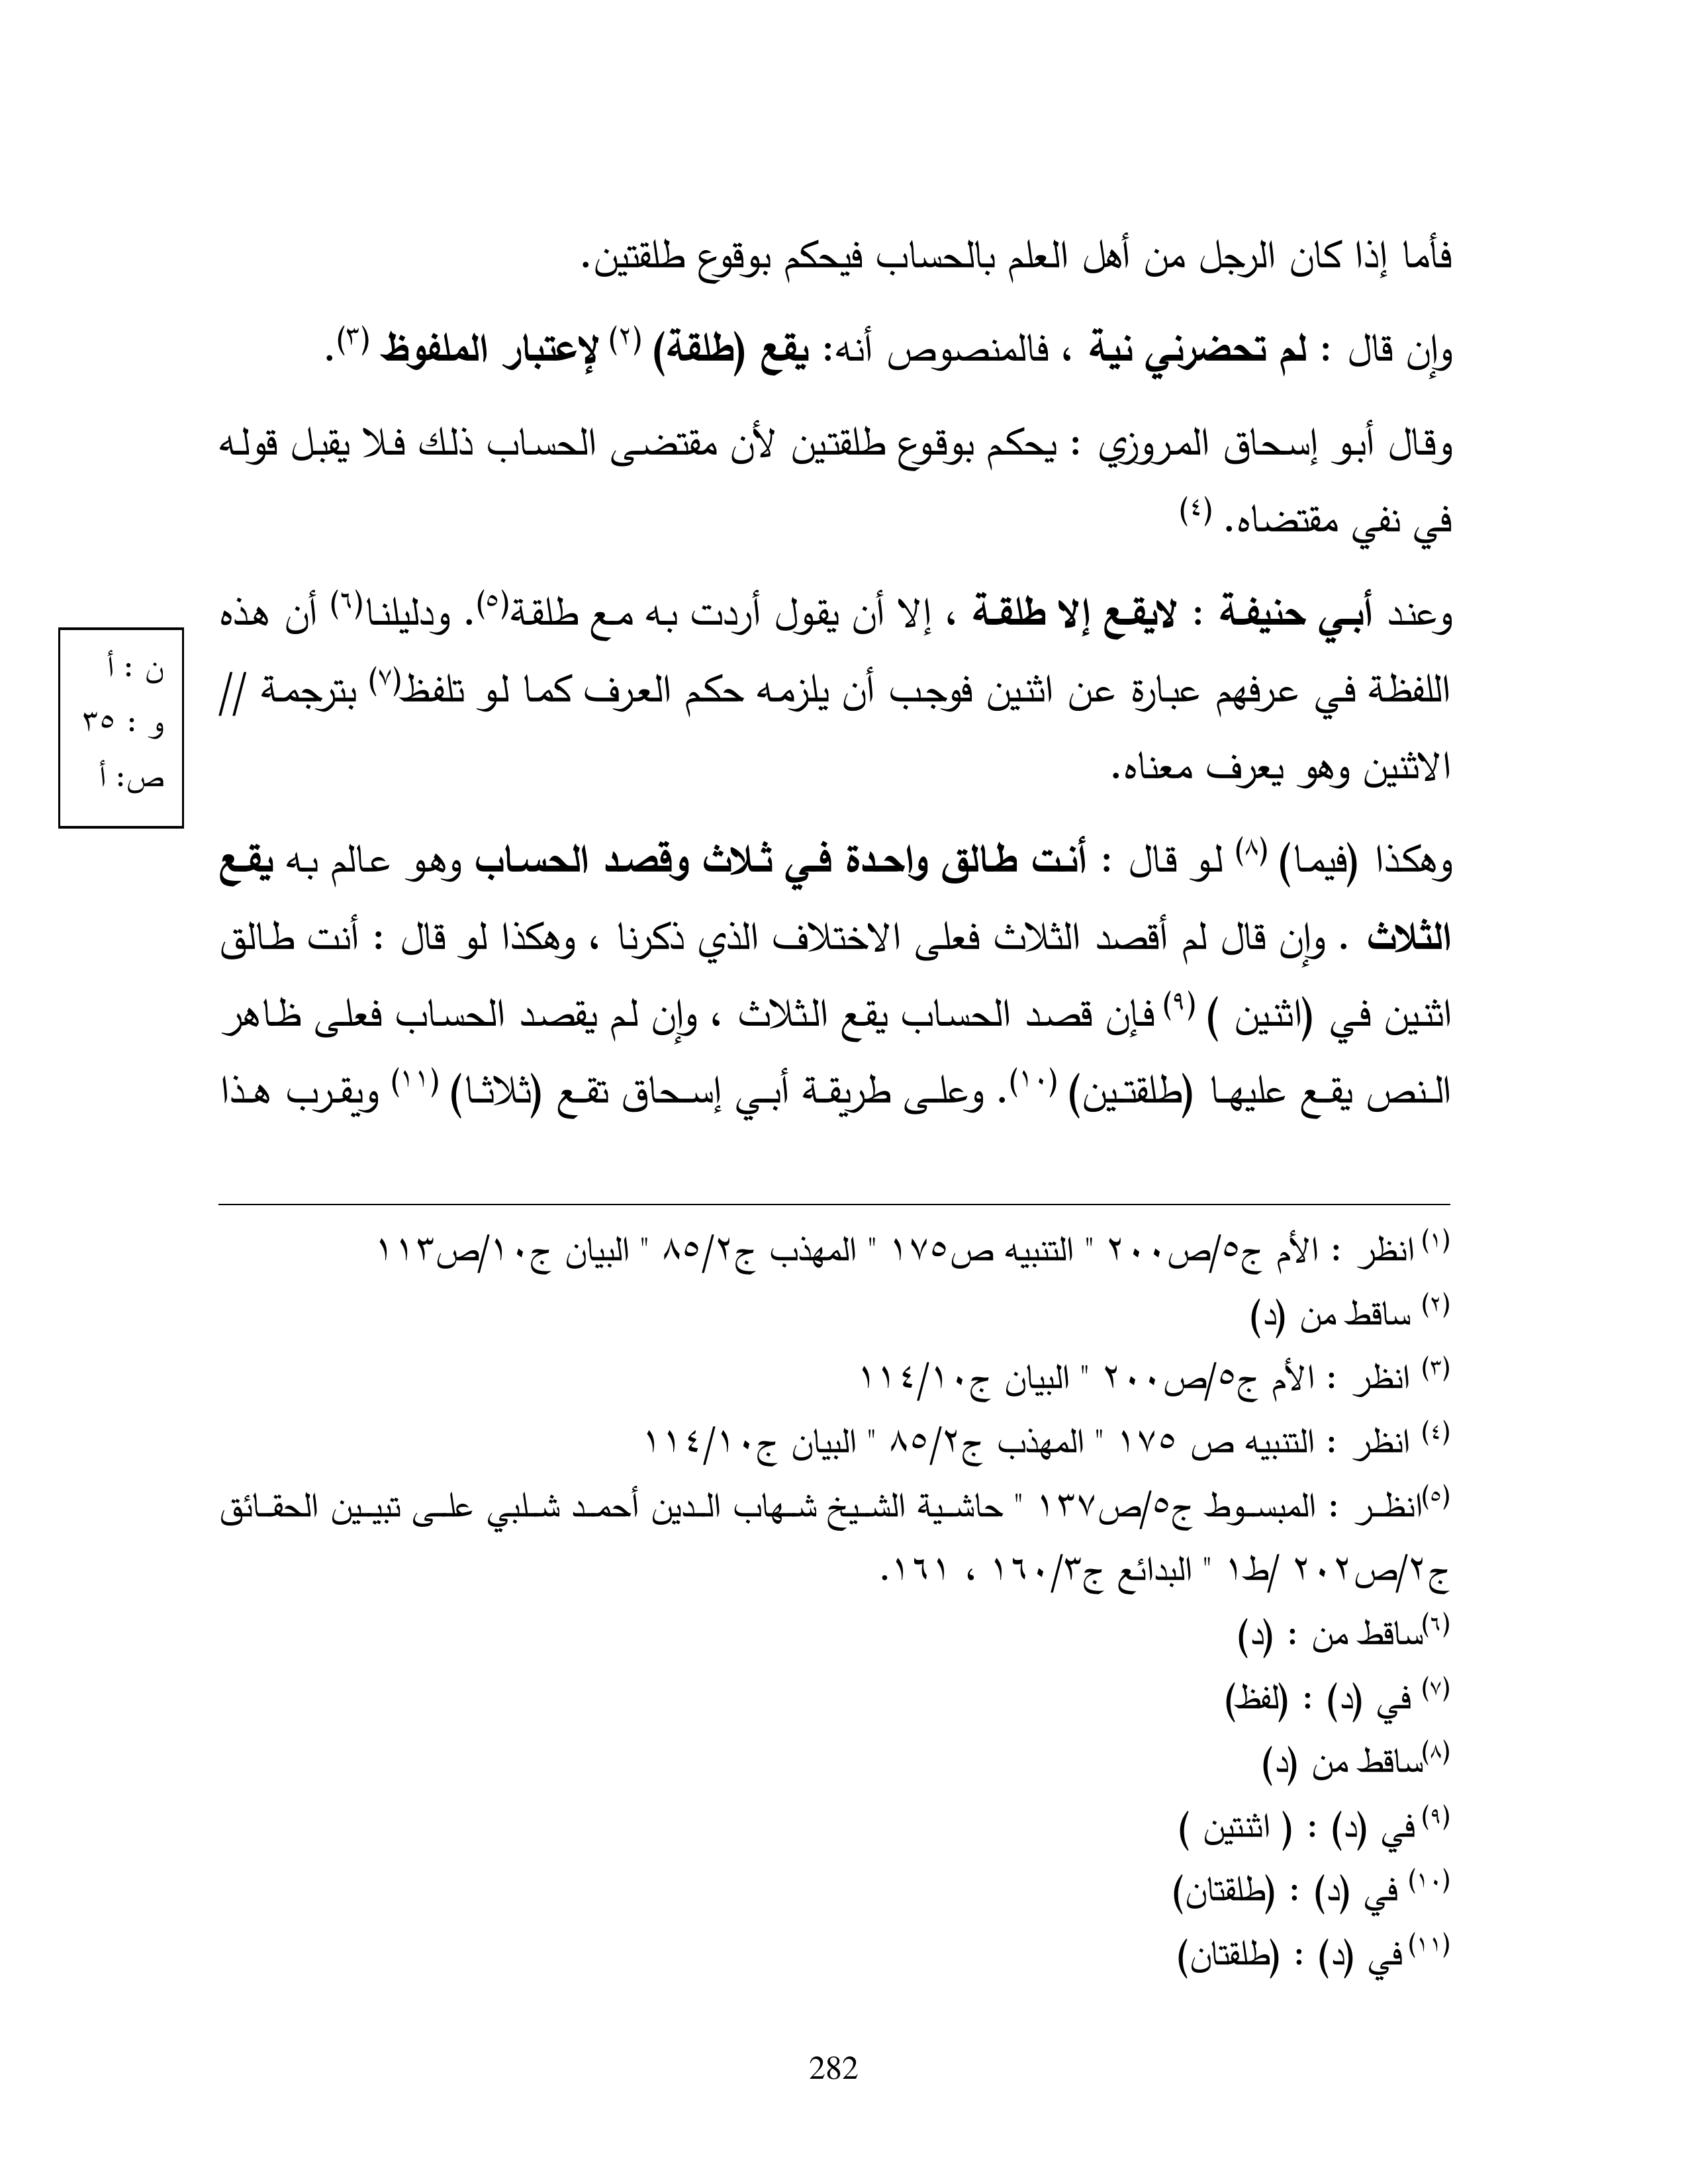 فأما إذا كان الرجل من أهل العلم بالحساب فيحكم بوقوع طلقتين.
وإن قال : لم تحضرني نية ، فالمنصوص أنه: يقع (طلقة) (٢) لإعتبار الملفوظ (٣).
وقال أبو إسحاق المروزي : يحكم بوقوع طلقتين لأن مقتضى الحساب ذلك فلا يقبل قوله
في نفي مقتضاه. (٤)
وعند أبي حنيفة : لايقع إلا طلقة ، إلا أن يقول أردت به مع طلقة(٥). ودليلنا(٦) أن هذه
اللفظة في عرفهم عبارة عن اثنين فوجب أن يلزمه حكم العرف كما لو تلفظ(٧) بترجمة //
الاثنين وهو يعرف معناه.
ن : أ
و : ٣٥
ص: أ
وهكذا (فيما) (٨) لو قال : أنت طالق واحدة في ثلاث وقصد الحساب وهو عالم به يقع
الثلاث . وإن قال لم أقصد الثلاث فعلى الاختلاف الذي ذكرنا ، وهكذا لو قال : أنت طالق
اثنين في (اثنين ) (٩) فإن قصد الحساب يقع الثلاث ، وإن لم يقصد الحساب فعلى ظاهر
النص يقع عليها (طلقتين) (١٠). وعلى طريقة أبي إسحاق تقع (ثلاثا) (١١) ويقرب هذا
(١) انظر : الأم ج٥/ص٢٠٠ " التنبيه ص١٧٥ " المهذب ج٨٥/٢ " البيان ج١٠/ص١١٣
(٢) ساقط من (د)
(٣) انظر : الأم ج٥/ص٢٠٠ " البيان ج١١٤/١٠
(٤) انظر : التنبيه ص ١٧٥ " المهذب ج٨٥/٢ " البيان ج١١٤/١٠
(٥)انظر : المبسوط ج٥/ص١٣٧ " حاشية الشيخ شهاب الدين أحمد شلبي على تبيين الحقائق
ج٢/ص٢٠٢ /ط١ " البدائع ج١٦٠/٣ ، ١٦١.
(٦)ساقط من : (د)
(٧) في (د) : (لفظ)
(٨)ساقط من (د)
(٩) في (د) : ( اثنتين )
(١٠) في (د) : (طلقتان)
(١١) في (د) : (طلقتان)
282